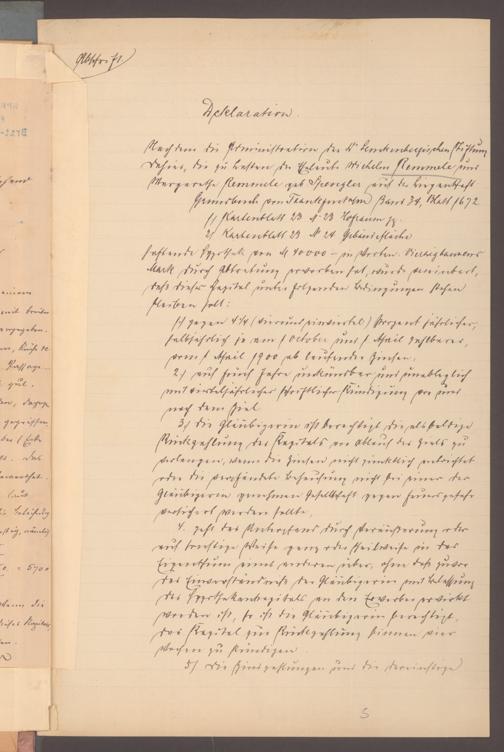 Abschrift.
Deklaration.
Nachdem die Administration der Dr Senckenbergischen Stiftung
dahier, die zu Lasten der Eheleute Wilhelm Remmele und
Margarethe Remmele geb Spengler auf der Liegenschaft
Grundbuch von Frankfurt a/m Band 34, Blatt 1672
1) Kartenblatt 23 No 23 Hofraum pp.
2) Kartenblatt 23 No 24 Gebäudefläche
haftende Hypothek von M 40000 – in Worten: Vierzigtausend
Mark, durch Abtretung erworben hat, wurde vereinbart,
daß dieses Kapital unter folgenden Bedingungen stehen
bleiben soll:
1) gegen 4 1/4 (vier und ein viertel) Prozent jährlicher,
halbjährlich je am 1 October und 1 April zahlbarer,
vom 1 April 1900 ab laufender Zinsen.
2) auf fünf Jahre unkündbar und unableglich
mit vierteljährlicher schriftlicher Kündigung vor und
nach dem Ziel
3) die Gläubigerin ist berechtigt die alsbaldige
Rückzahlung des Kapitals vor Ablauf des Ziels zu
verlangen, wenn die Zinsen nicht pünktlich entrichtet
oder die verpfändete Behausung nicht bei einer der
Gläubigerin genehmen Gesellschaft gegen Feuersgefahr
versichert werden sollte.
4. geht das Unterpfand durch Veräußerung oder
auf sonstige Weise ganz oder theilweise in das
Eigenthum eines anderen über, ohne daß zuvor
das Einverständniß der Gläubigerin mit Belassung
des Hypothekenkapitals an den Erwerber erwirkt
worden ist, so ist die Gläubigerin berechtigt,
das Kapital zur Rückzahlung binnen vier
Wochen zu kündigen.
5) Die Zinszahlungen und die dereinstige
3